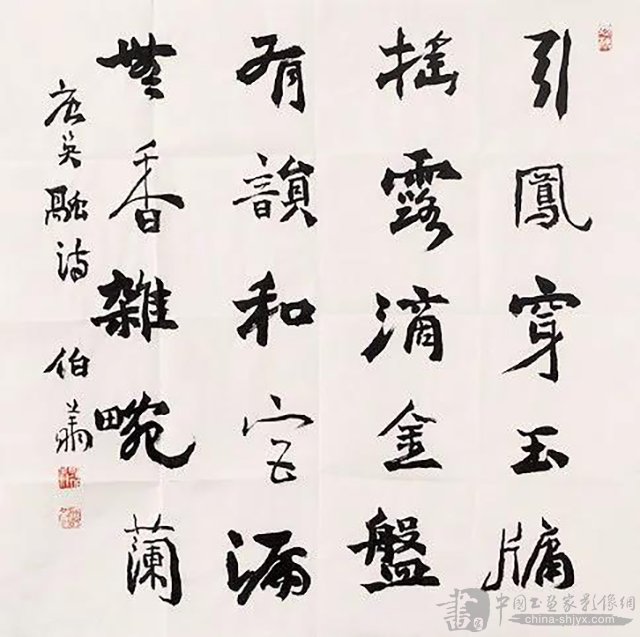 引鳳穿玉牖
搖露滴金盤
有韻和宮漏
無香雜畹蘭
唐吳融詩
伯
書 中國书画家影像網
china-shjyx.com